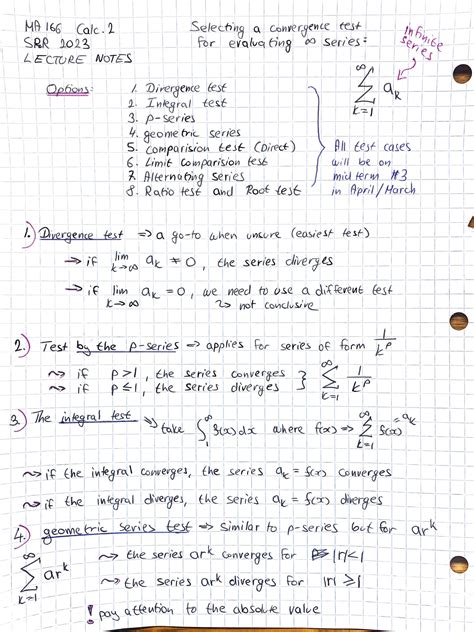 MA 166 Calc. 2
SPR 2023
LECTURE NOTES
Selecting a convergence test
for evaluating ∞ series:
infinite series
∞ Σ k=1 a_k
Options:
1. Divergence test
2. Integral test
3. p-series
4. geometric series
5. Comparision test (Direct)
6. Limit comparision test
7. Alternating series
8. Ratio test and Root test
All test cases
will be on
midterm #3
in April/March
1.) Divergence test ⇒ a go-to when unsure (easiest test)
→ if lim k→∞ a_k ≠ 0, the series diverges
→ if lim k→∞ a_k = 0, we need to use a different test
↪ not conclusive
2.) Test by the p-series ⇒ applies for series of form 1/k^p
⤳ if p>1, the series converges
⤳ if p≤1, the series diverges } ∞ Σ k=1 1/k^p
3.) The integral test ⇒ take ∫_1^∞ f(x)dx where f(x) ⇒ ∞ Σ k=1 f(x) = a_k
⤳ if the integral converges, the series a_k = f(x) converges
⤳ if the integral diverges, the series a_k = f(x) diverges
4.) geometric series test ⇒ Similar to p-series but for ar^k
∞ Σ k=1 ar^k
⤳ the series ar^k converges for |r|<1
⤳ the series ar^k diverges for |r|≥1
! pay attention to the absolute value